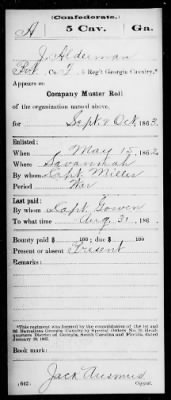 (Confederate.)
A 5 Cav. Ga.
J. Alderman
Pvt., Co. 5 Reg't Georgia Cavalry.*
Appears on
Company Muster Roll
of the organization named above,
for Sept & Oct, 1863.
Enlisted:
When May 15, 1862
Where Savannah
By whom Capt Miller
Period War
Last paid:
By whom Capt Gowen
To what time Aug 31, 186
Bounty paid $ 100; due $ 100
Present or absent Present
Remarks:
*This regiment was formed by the consolidation of the 1st and
2d Battalions Georgia Cavalry by Special Orders No. Head-
quarters District of Georgia, South Carolina and Florida, dated
January 20, 1863.
Book mark:
Jack Ausmus
(642) Copyist.